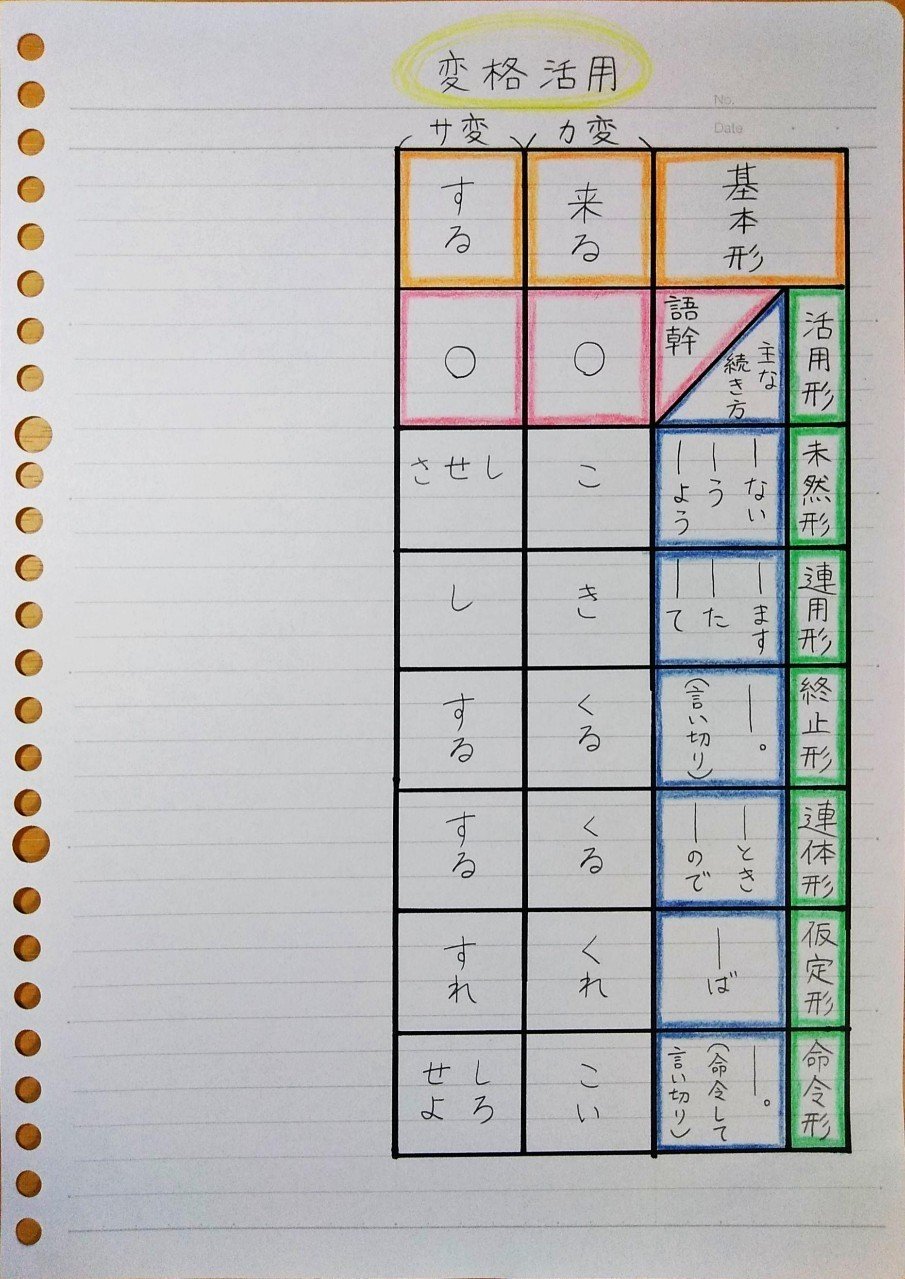 変格活用
No.
Date
カ変
サ変
基本形
来る
する
活用形
主な
続き方
語幹
○
○
未然形
―ない
―う
―よう
こ
し
せ
さ
連用形
―ます
―た
―て
き
し
終止形
―。
(言い切り)
くる
する
連体形
―とき
―ので
くる
する
仮定形
―ば
くれ
すれ
命令形
―。
(命令して
言い切り)
こい
しろ
せよ